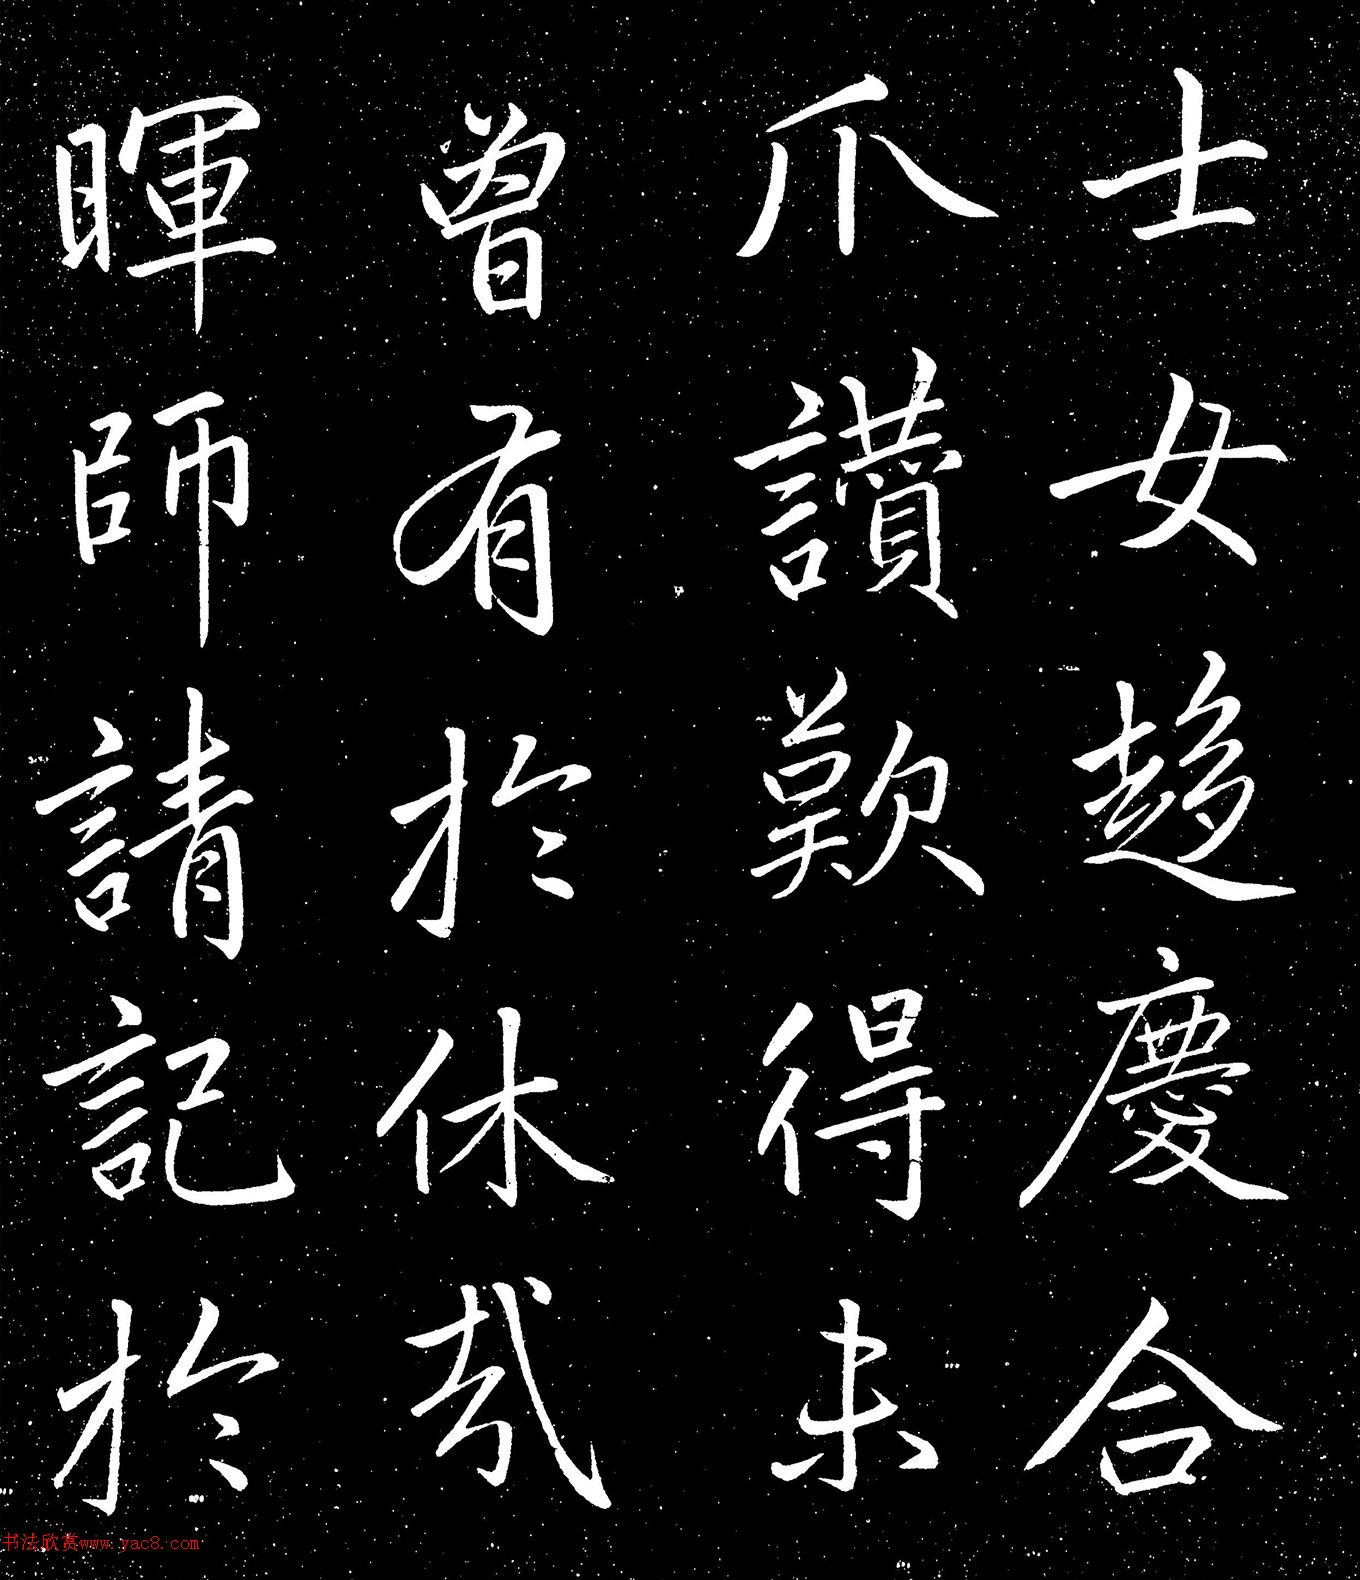 士女趍慶合
爪讚歎得未
曾有於休㢤
暉師請記於
书法欣赏www.yac8.com